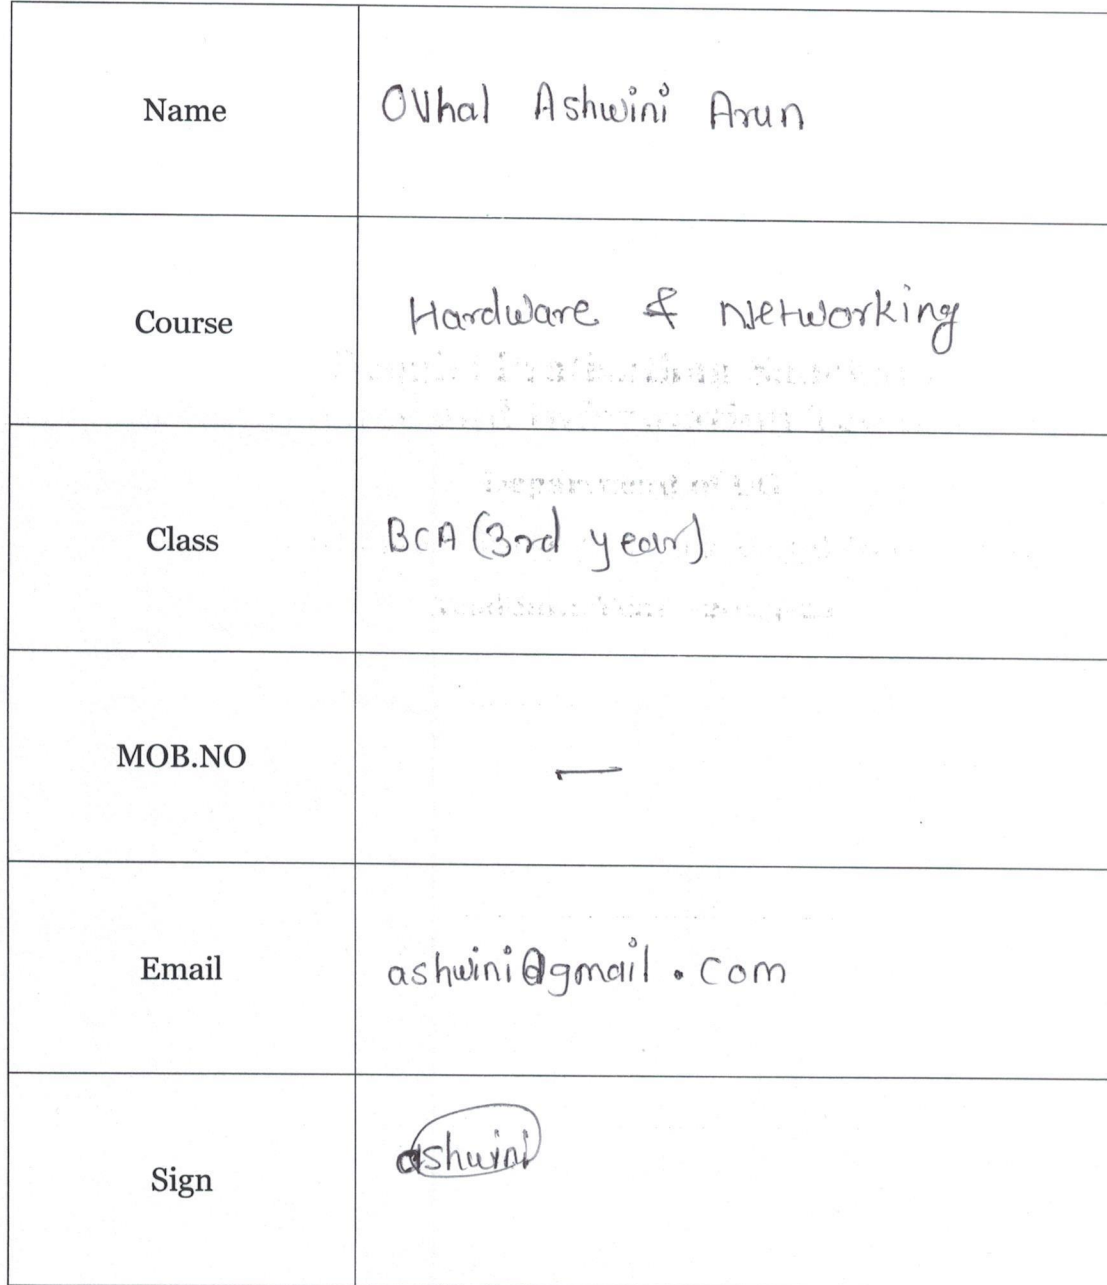 Name OVhal Ashwini Arun
Course Hardware & Networking
Class BCA (3rd year)
MOB.NO —
Email ashwini@gmail.com
Sign ashwini